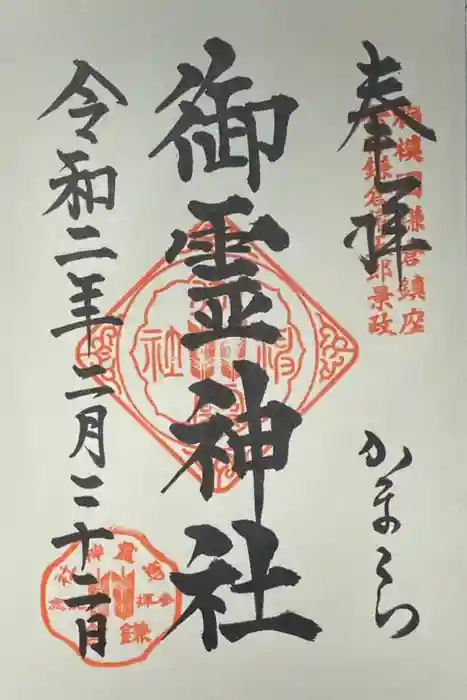 奉拝
相模国鎌倉鎮座
鎌倉権五郎景政
かまくら
御霊神社
令和二年二月二十二日